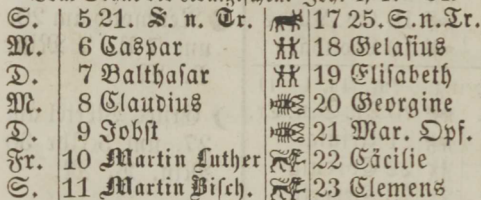 S. 5 21. S. n. Tr. 17 25. S. n. Tr.
M. 6 Caspar 18 Gelasius
D. 7 Balthasar 19 Elisabeth
M. 8 Claudius 20 Georgine
D. 9 Jobst 21 Mar. Opf.
Fr. 10 Martin Luther 22 Cäcilie
S. 11 Martin Bisch. 23 Clemens